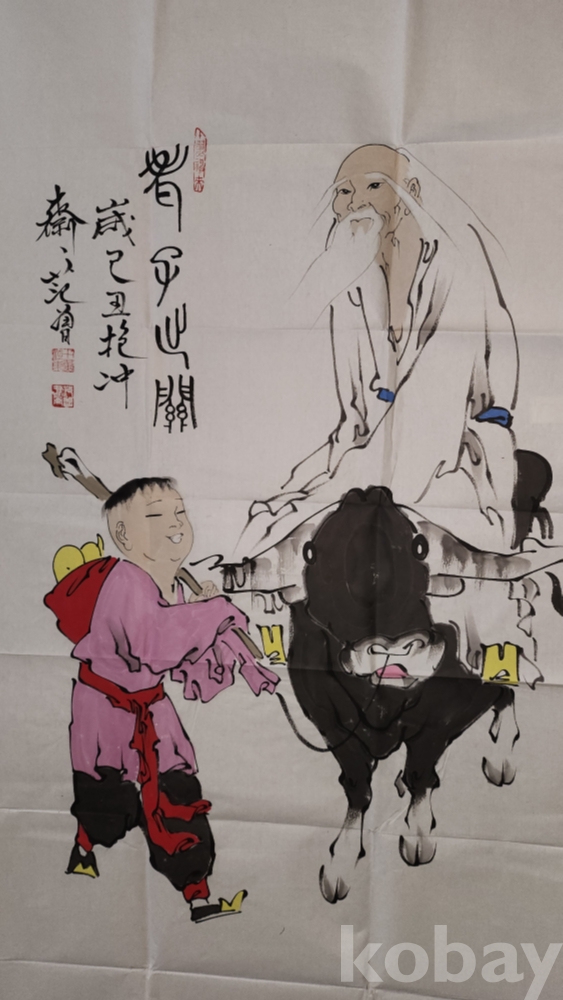 老子出關
歲己丑抱冲
齋范曾
kobay